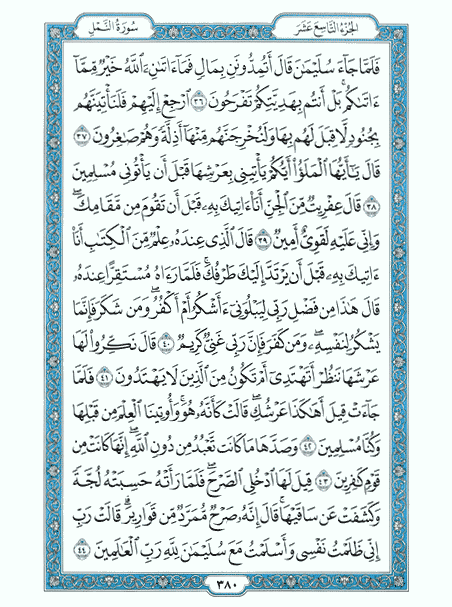 الجزء التاسع عشر
سورة النمل
فَلَمَّا جَآءَ سُلَيْمَٰنَ قَالَ أَتُمِدُّونَنِ بِمَالٍ فَمَآ ءَاتَىٰنِۦَ ٱللَّهُ خَيْرٌ مِّمَّآ
ءَاتَىٰكُم بَلْ أَنتُم بِهَدِيَّتِكُمْ تَفْرَحُونَ ٣٦ ٱرْجِعْ إِلَيْهِمْ فَلَنَأْتِيَنَّهُم
بِجُنُودٍ لَّا قِبَلَ لَهُم بِهَا وَلَنُخْرِجَنَّهُم مِّنْهَآ أَذِلَّةً وَهُمْ صَٰغِرُونَ ٣٧
قَالَ يَٰٓأَيُّهَا ٱلْمَلَؤُا۟ أَيُّكُمْ يَأْتِينِى بِعَرْشِهَا قَبْلَ أَن يَأْتُونِى مُسْلِمِينَ
٣٨ قَالَ عِفْرِيتٌ مِّنَ ٱلْجِنِّ أَنَا۠ ءَاتِيكَ بِهِۦ قَبْلَ أَن تَقُومَ مِن مَّقَامِكَ ۖ
وَإِنِّى عَلَيْهِ لَقَوِىٌّ أَمِينٌ ٣٩ قَالَ ٱلَّذِى عِندَهُۥ عِلْمٌ مِّنَ ٱلْكِتَٰبِ أَنَا۠
ءَاتِيكَ بِهِۦ قَبْلَ أَن يَرْتَدَّ إِلَيْكَ طَرْفُكَ ۚ فَلَمَّا رَءَاهُ مُسْتَقِرًّا عِندَهُۥ
قَالَ هَٰذَا مِن فَضْلِ رَبِّى لِيَبْلُوَنِىٓ ءَأَشْكُرُ أَمْ أَكْفُرُ ۖ وَمَن شَكَرَ فَإِنَّمَا
يَشْكُرُ لِنَفْسِهِۦ ۖ وَمَن كَفَرَ فَإِنَّ رَبِّى غَنِىٌّ كَرِيمٌ ٤٠ قَالَ نَكِّرُوا۟ لَهَا
عَرْشَهَا نَنظُرْ أَتَهْتَدِىٓ أَمْ تَكُونُ مِنَ ٱلَّذِينَ لَا يَهْتَدُونَ ٤١ فَلَمَّا
جَآءَتْ قِيلَ أَهَٰكَذَا عَرْشُكِ ۖ قَالَتْ كَأَنَّهُۥ هُوَ ۚ وَأُوتِينَا ٱلْعِلْمَ مِن قَبْلِهَا
وَكُنَّا مُسْلِمِينَ ٤٢ وَصَدَّهَا مَا كَانَت تَّعْبُدُ مِن دُونِ ٱللَّهِ ۖ إِنَّهَا كَانَتْ مِن
قَوْمٍ كَٰفِرِينَ ٤٣ قِيلَ لَهَا ٱدْخُلِى ٱلصَّرْحَ ۖ فَلَمَّا رَأَتْهُ حَسِبَتْهُ لُجَّةً
وَكَشَفَتْ عَن سَاقَيْهَا ۚ قَالَ إِنَّهُۥ صَرْحٌ مُّمَرَّدٌ مِّن قَوَارِيرَ ۗ قَالَتْ رَبِّ
إِنِّى ظَلَمْتُ نَفْسِى وَأَسْلَمْتُ مَعَ سُلَيْمَٰنَ لِلَّهِ رَبِّ ٱلْعَٰلَمِينَ ٤٤
٣٨٠